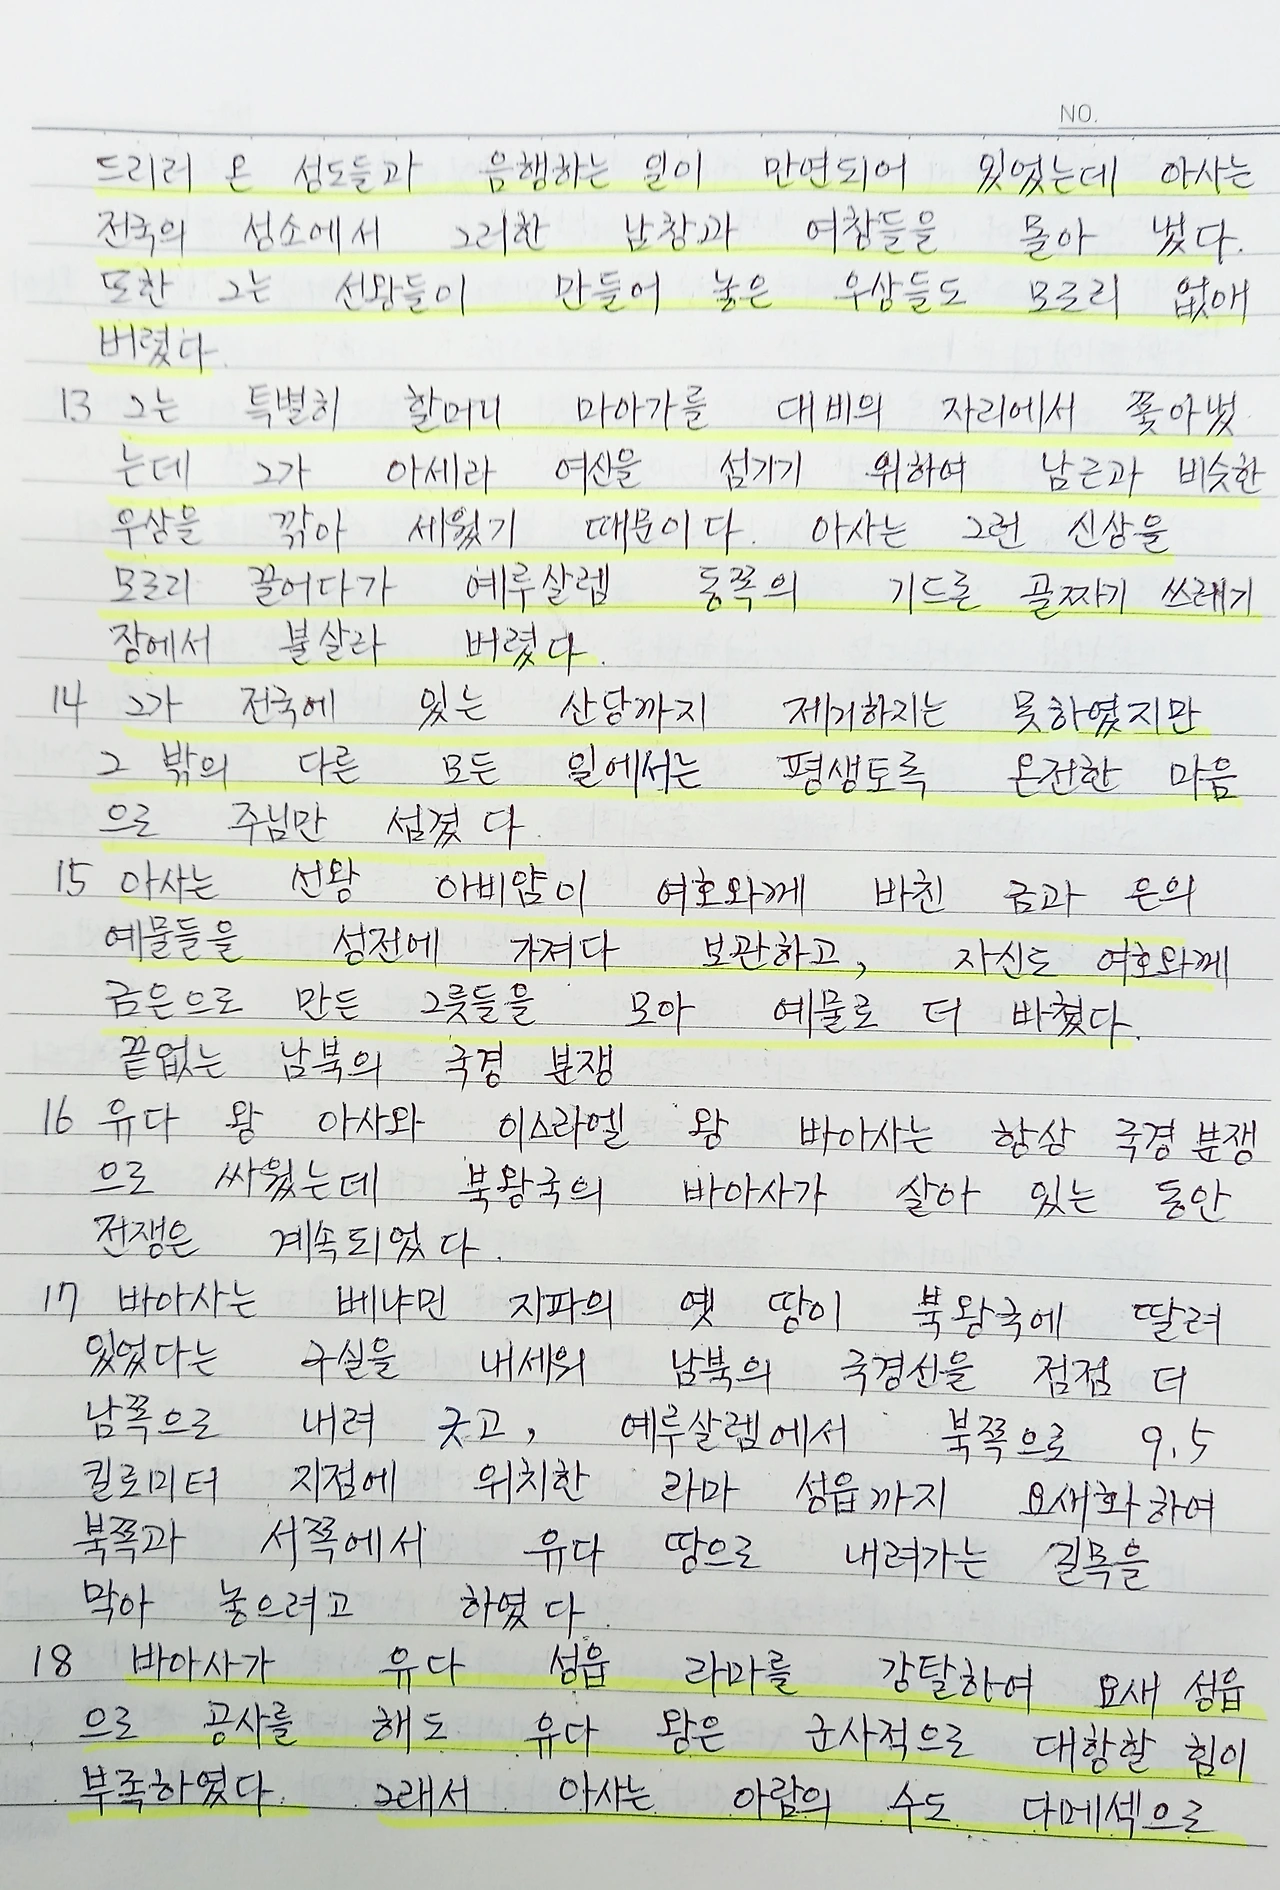 NO.
드리러 온 성도들과 음행하는 일이 만연되어 있었는데 아사는
전국의 성소에서 그러한 남창과 여창들을 몰아 냈다.
또한 그는 선왕들이 만들어 놓은 우상들도 모조리 없애
버렸다.
13 그는 특별히 할머니 마아가를 대비의 자리에서 쫓아냈
는데 그가 아세라 여신을 섬기기 위하여 남근과 비슷한
우상을 깎아 세웠기 때문이다. 아사는 그런 신상을
모조리 끌어다가 예루살렘 동쪽의 기드론 골짜기 쓰레기
장에서 불살라 버렸다.
14 그가 전국에 있는 산당까지 제거하지는 못하였지만
그 밖의 다른 모든 일에서는 평생토록 온전한 마음
으로 주님만 섬겼다.
15 아사는 선왕 아비얌이 여호와께 바친 금과 은의
예물들을 성전에 가져다 보관하고, 자신도 여호와께
금은으로 만든 그릇들을 모아 예물로 더 바쳤다.
끝없는 남북의 국경 분쟁
16 유다 왕 아사와 이스라엘 왕 바아사는 항상 국경분쟁
으로 싸웠는데 북왕국의 바아사가 살아 있는 동안
전쟁은 계속되었다.
17 바아사는 베냐민 지파의 옛 땅이 북왕국에 딸려
있었다는 구실을 내세워 남북의 국경선을 점점 더
남쪽으로 내려 긋고, 예루살렘에서 북쪽으로 9.5
킬로미터 지점에 위치한 라마 성읍까지 요새화하여
북쪽과 서쪽에서 유다 땅으로 내려가는 길목을
막아 놓으려고 하였다.
18 바아사가 유다 성읍 라마를 강탈하여 요새 성읍
으로 공사를 해도 유다 왕은 군사적으로 대항할 힘이
부족하였다. 그래서 아사는 아람의 수도 다메섹으로